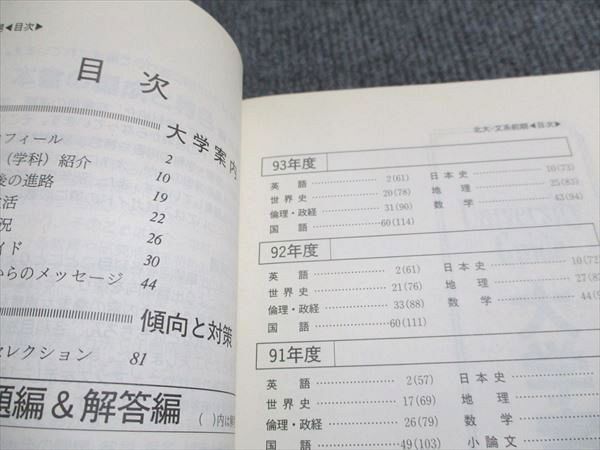 ◀目次▶
目次
大学案内
フィール 2
(学科)紹介 10
後の進路 19
活 22
況 26
イド 30
からのメッセージ 44
傾向と対策
セレクション 81
題編&解答編 ( )内は解
北大-文系前期◀目次▶
93年度
英語 2(61) 日本史 10(73)
世界史 20(78) 地理 25(83)
倫理・政経 31(90) 数学 43(94)
国語 60(114)
92年度
英語 2(61) 日本史 10(72)
世界史 21(76) 地理 27(8
倫理・政経 33(88) 数学 44(9
国語 60(111)
91年度
英語 2(57) 日本史
世界史 17(69) 地理
倫理・政経 26(79) 数学
国語 49(103) 小論文